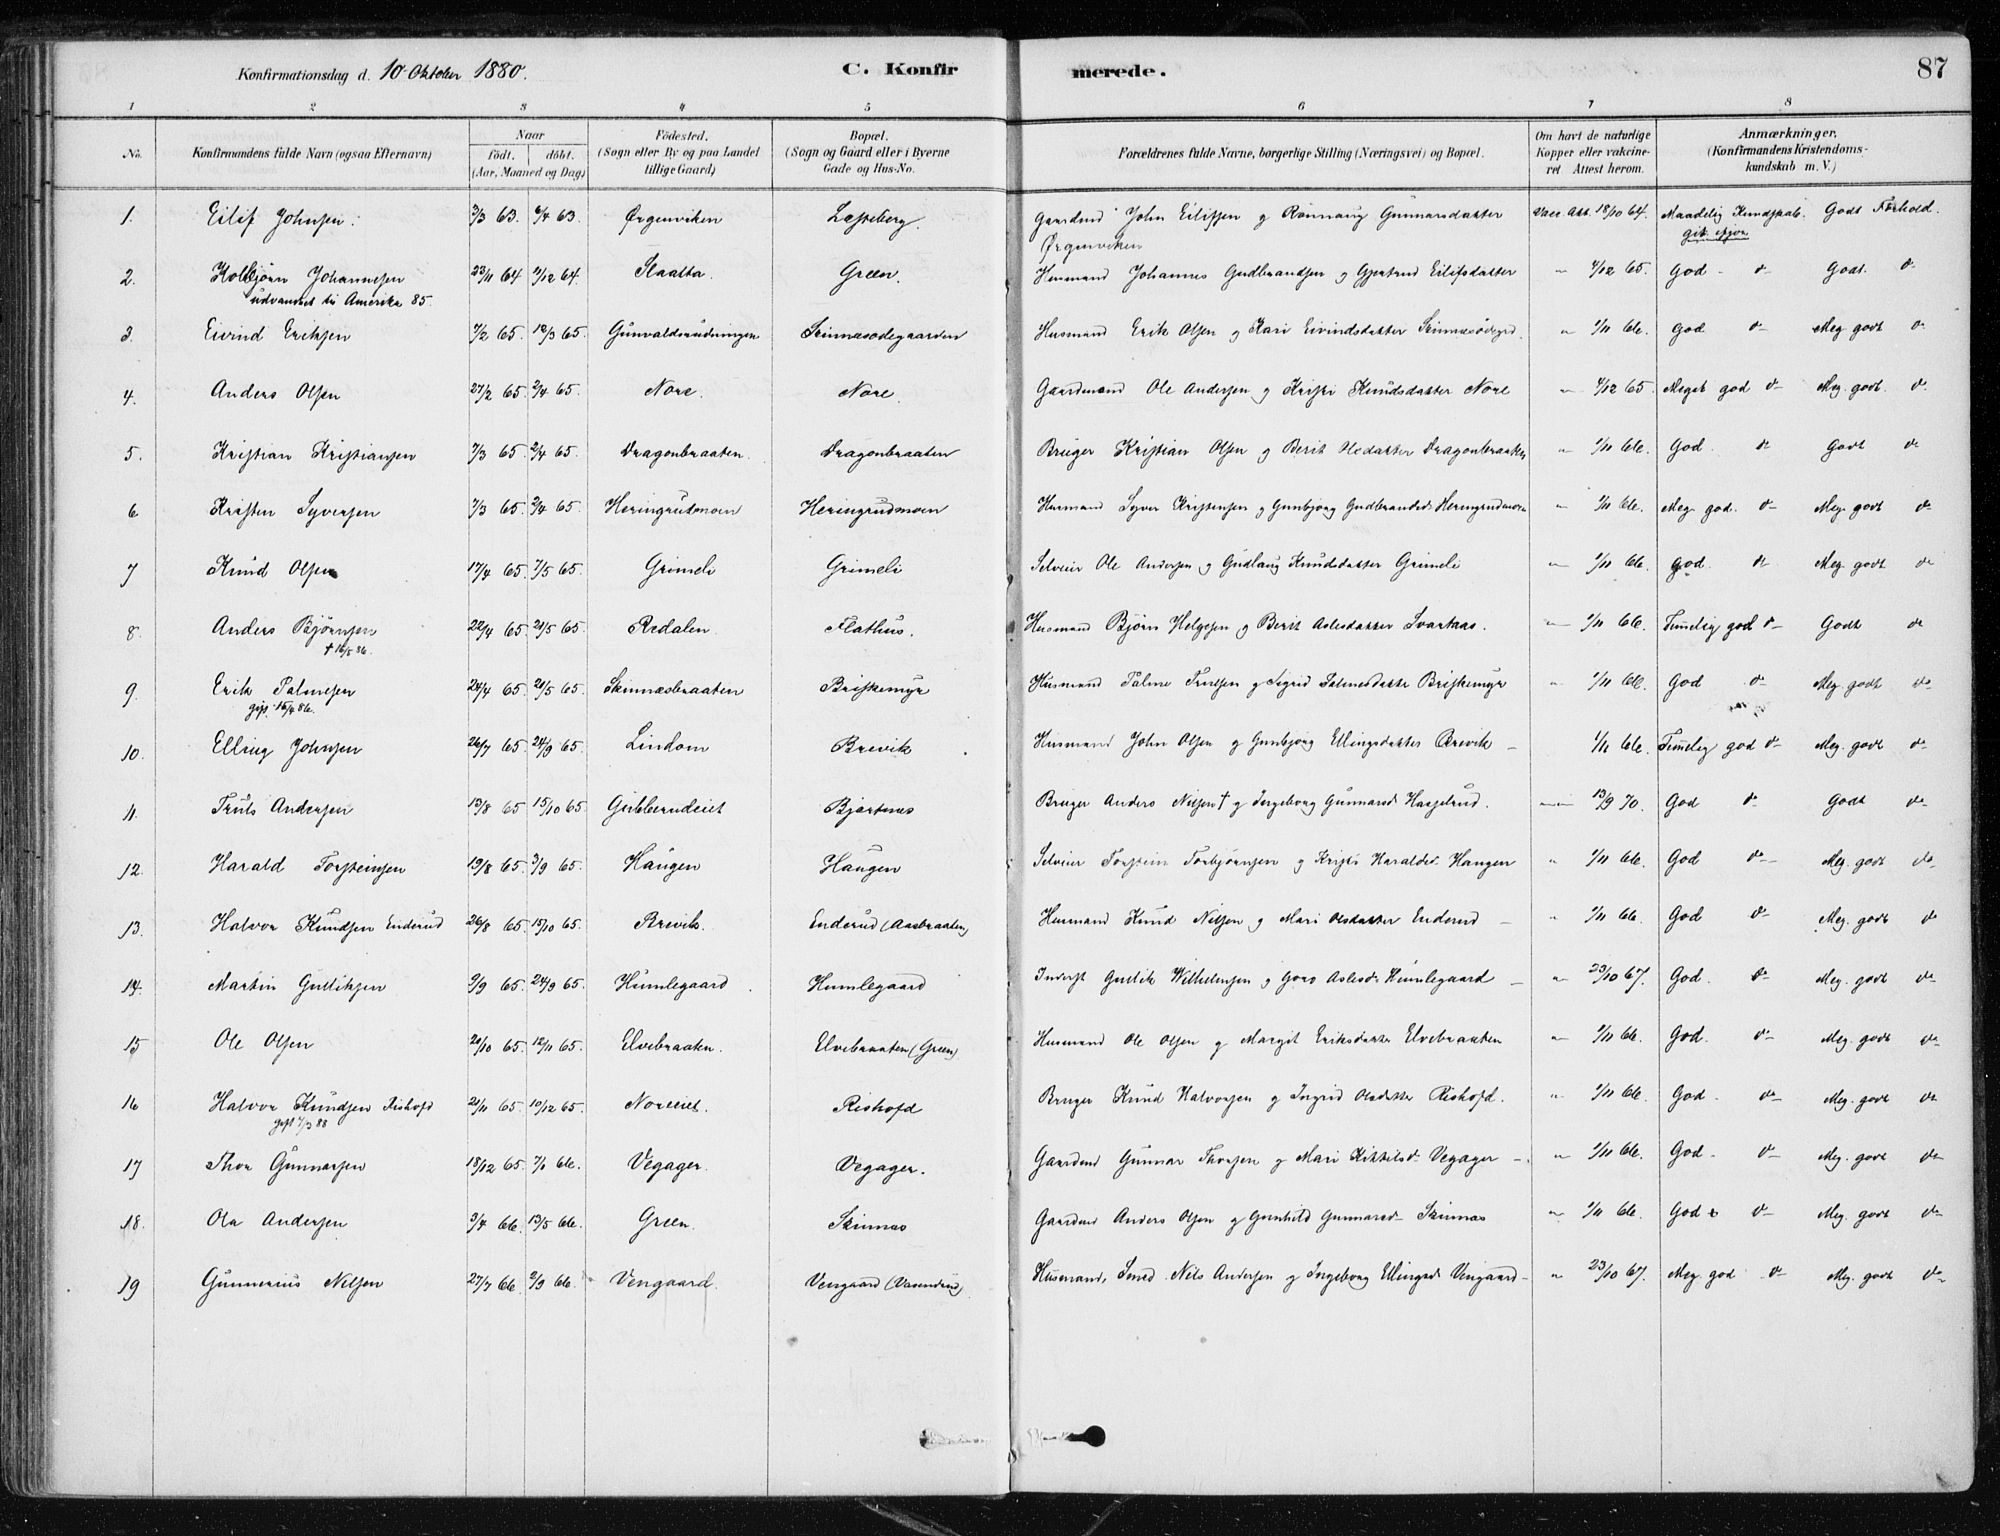 Konfirmationsdag d. 10 Oktober 1880. C. Konfirmerede. 87
1 2 3 4 5 6 7 8
No. Konfirmandens fulde Navn (ogsaa Efternavn) Naar födt. döbt. (Aar, Maaned og Dag) Födested. (Sogn eller By og paa Landet tillige Gaard) Bopæl. (Sogn og Gaard eller i Byerne Gade og Hus-No. Forældrenes fulde Navne, borgerlige Stilling (Næringsvei) og Bopæl. Om havt de naturlige Kopper eller vakcineret Attest herom. Anmærkninger. (Konfirmandens Kristendomskundskab m. V.)
1. Eilif Johnsen. 7/3 63. 6/4 63. Ørgenviken Gaardmd John Eilifsen g Rönnaug Gunnarsdatter Vacc. Att. 18/10 64. Maadelig Kundskab. Godt Forhold.
Ørgenviken
2. Kolbjörn Johannesen 23/11 64 64. Slaatta. Green. Husmand Johannes Gudbrandsen g Gjertrud Eilifsdatter " 4/12 65. God do Godt. do
udvandret til Amerika 85.
3. Eivind Eriksen 7/2 65. 65. Gunvaldsrudningen Skinnæsødegaarden Husmand Erik Olsen g Kari Eivindsdatter Skinnæsødegrd. " 1/11 66. God do Meg godt do
4. Anders Olsen 27/2 65. 2/4 65. Nore. Nore. Gaardmand Ole Andersen g Kristi Knudsdatter Nore " 4/12 65. Meget god do Meg. godt. do
5. Kristian Kristiansen 7/3 65. 2/4 65. Dragonbraaten. Dragonbraaten Bruger Kristian Olsen g Berit Oledatter Dragonbraaten " 1/11 66. God. do Godt do
6 Kristen Syversen 7/3 65. 2/4 65. Heringrudmoen Heringrudmoen Husmand Syver Kristensen g Gunbjörg Gudbrandsd. Heringrudmoen " 1/11 66. Meg. god. do Meg. godt do
7 Knud Olsen 17/4 65. 7/5 65. Grimeli Grimeli Selveier Ole Andersen g Gudlaug Knudsdatter Grimeli " 1/11 66. God. do Meg. godt do
8. Anders Bjørnsen 22/4 65. 21/5 65. Redalen. Flathus. Husmand Bjørn Helgesen g Berit Aslesdatter Svartaas. " 1/11 66. Temmelig god do Godt do
† 16/5 86.
9. Erik Palmesen 24/4 65. 21/5 65. Skinnæsbraaten Briskemyr Husmand Palme Trulsen g Sigrid Briskemyr " 1/11 66. God do Meg godt do
gift 86.
10. Elling Johnsen 26/7 65. 24/9 65. Lindom Brevik Husmand John Olsen g Gunbjörg Ellingsdatter Brevik – 1/11 66. Temmelig god do Meg. godt do
11. Truls Andersen 13/8 65 15/10 65. Gubberudeiet Bjertnæs Bruger Anders Nilsen † g Ingeborg Gunnarsd. " 13/9 70. God do Godt do
12. Harald Torsteinsen 19/8 65. 3/9 65. Haugen Haugen Selveier Torstein Torbjørnsen g Kristi Haraldsd. Haugen " 1/11 66. God do Meg. godt do
13. Halvor Knudsen Enderud 26/8 65. 15/10 65. Brevik. Enderud (Aasbraaten) Husmand Knud Nilsen g Mari Olsdatter Enderud – " 1/11 66. God do Meg. godt do
14. Martin Gulliksen 9/9 65. 24/9 65. Humlegaard. Humlegaard Inderst Gullik Wilhelmsen g Goro Aslesd. Humlegaard – " 23/10 67. God. do Meg. godt do
15 Ole Olsen 20/10 65. 12/11 65. Elvebraaten. Elvebraaten (Green) Husmand Ole Olsen g Margit Eriksdatter Elvebraaten " 1/11 66. God. do Meg. godt do
16 Halvor Knudsen Rishovd 21/11 65. 10/12 65. Noreeiet. Rishovd Bruger Knud Halvorsen g Ingrid Olsdatter Rishovd. " 1/11 66. God. do Meg. godt do
gift 7/3 88
17 Thor Gunnarsen 18/12 65. 7/1 66. Vegager. Vegager. Gaardmd Gunnar Thorsen g Mari Kittilsd. Vegager – " 1/11 66. God. do Meg. godt do
18. Ole Andersen 3/4 66. 13/5 66. Green. Skinnæs Gaardmd Anders Olsen g Gunhild Gunnarsd. Skinnæs " 1/11 66. God do Meg. godt do
19 Gunnerius Nilsen 27/7 66. 2/9 66. Vengaard. Vengaard Husmand, Smed Nils Andersen g Ingeborg Ellingsd. Vengaard – " 23/10 67. Meg. god do Meg. godt do